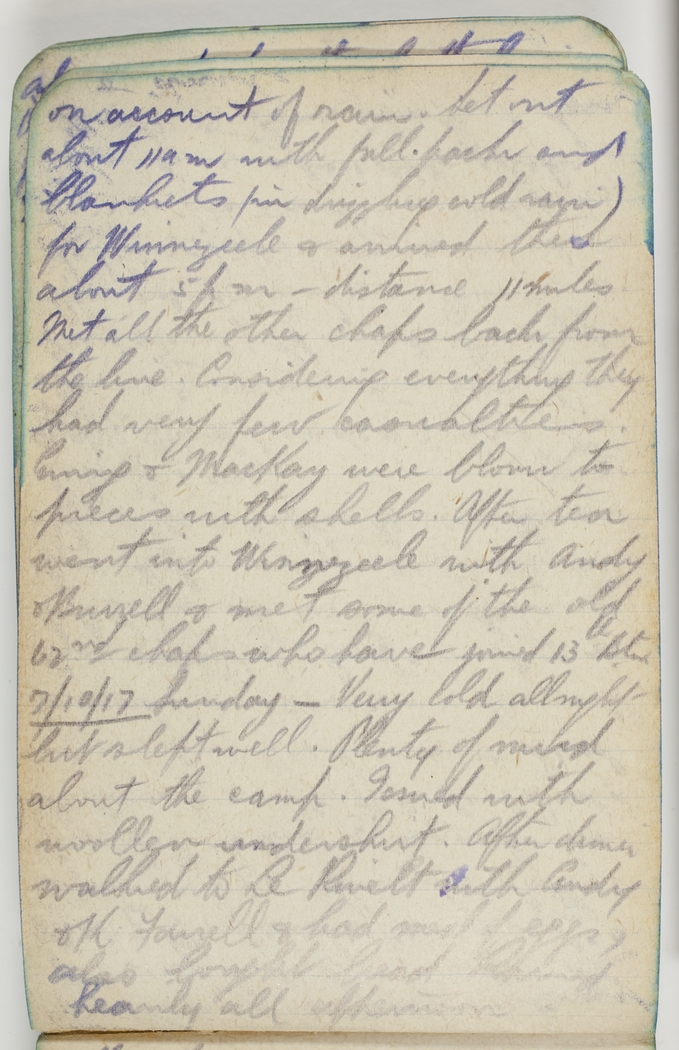 on account of rain. Set out
about 11am with full packs and
blankets (in drizzling cold rain)
for Winnezeele & arrived there
about 5pm – distance 11 miles
Met all the other chaps back from
the line. Considering everything they
had very few casualties.
& MacKay were blown to
pieces with shells. After tea
went into Winnezeele with Andy
& Burrell & met some of the old
62nd chaps who have joined 13th
7/10/17 Sunday – Very cold all night
but slept well. Plenty of mud
about the camp. Issued with
woollen undershirt. After dinner
walked to Le Rivelt with Andy
& had of eggs,
also bought bread. Rained
heavily all afternoon